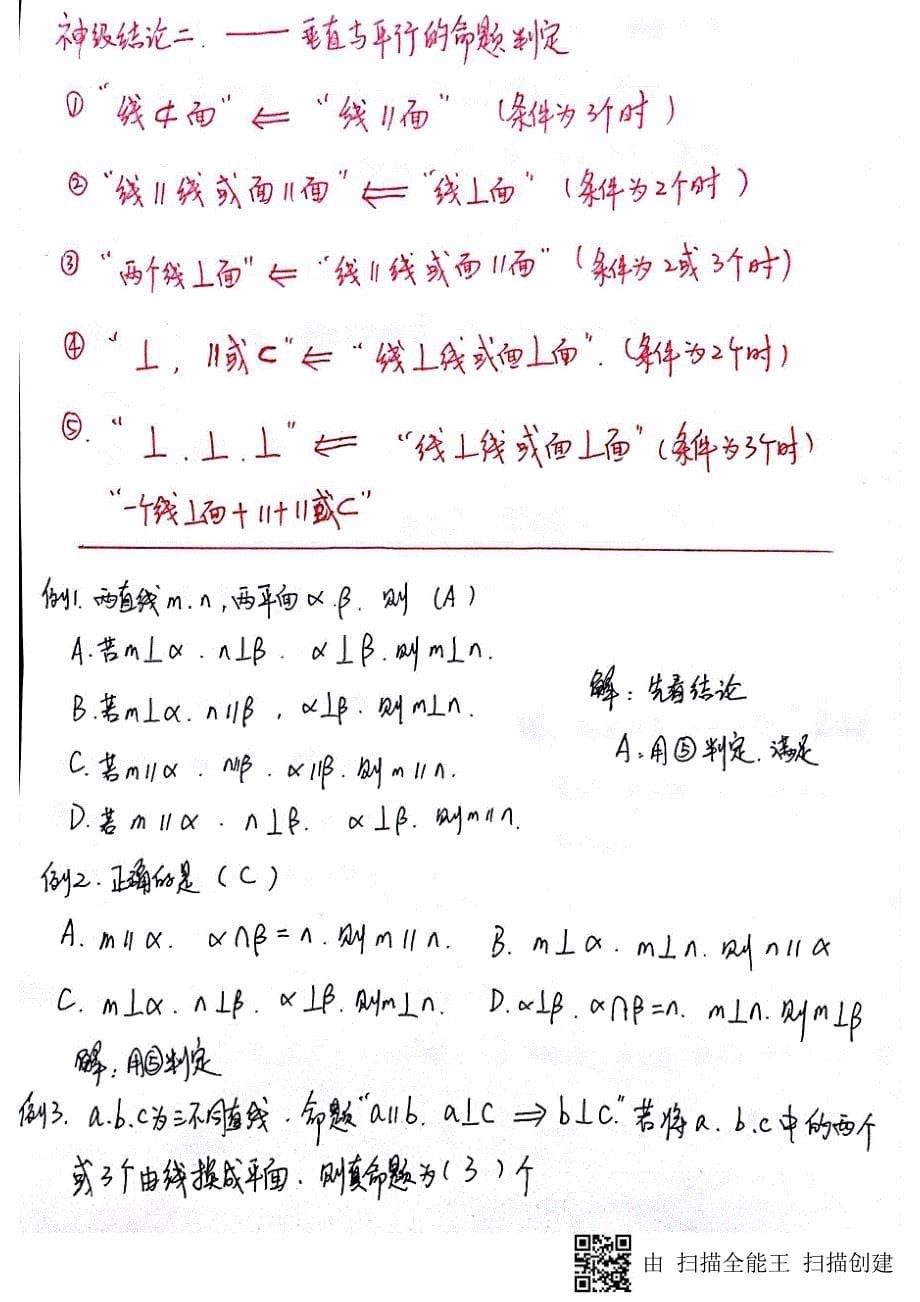 神级结论二. —— 垂直与平行的命题判定
① “线⊄面” ⇐ “线∥面” (条件为3个时)
② “线∥线或面∥面” ⇐ “线⊥面” (条件为2个时)
③ “两个线⊥面” ⇐ “线∥线或面∥面” (条件为2或3个时)
④ “⊥, ∥或⊂” ⇐ “线⊥线或面⊥面”. (条件为2个时)
⑤. “⊥.⊥.⊥” ⇐ “线⊥线或面⊥面” (条件为3个时)
“一个线⊥面+∥+∥或⊂”
例1. 两直线m.n,两平面α.β. 则 (A)
A.若m⊥α. n⊥β. α⊥β.则m⊥n.
B.若m⊥α. n∥β, α⊥β.则m⊥n.
C.若m∥α. n∥β. α∥β.则m∥n.
D.若m∥α. n⊥β. α⊥β.则m∥n.
解: 先看结论
A:用⑤判定.满足
例2.正确的是 (C)
A. m∥α. α∩β=n.则m∥n. B. m⊥α. m⊥n.则n∥α
C. m⊥α. n⊥β. α⊥β.则m⊥n. D.α⊥β. α∩β=n. m⊥n.则m⊥β
解: 用⑤判定
例3. a.b.c为三不同直线. 命题“a∥b. a⊥c ⇒ b⊥c.”若将a.b.c中的两个
或3个由线换成平面. 则真命题为(3)个
由 扫描全能王 扫描创建